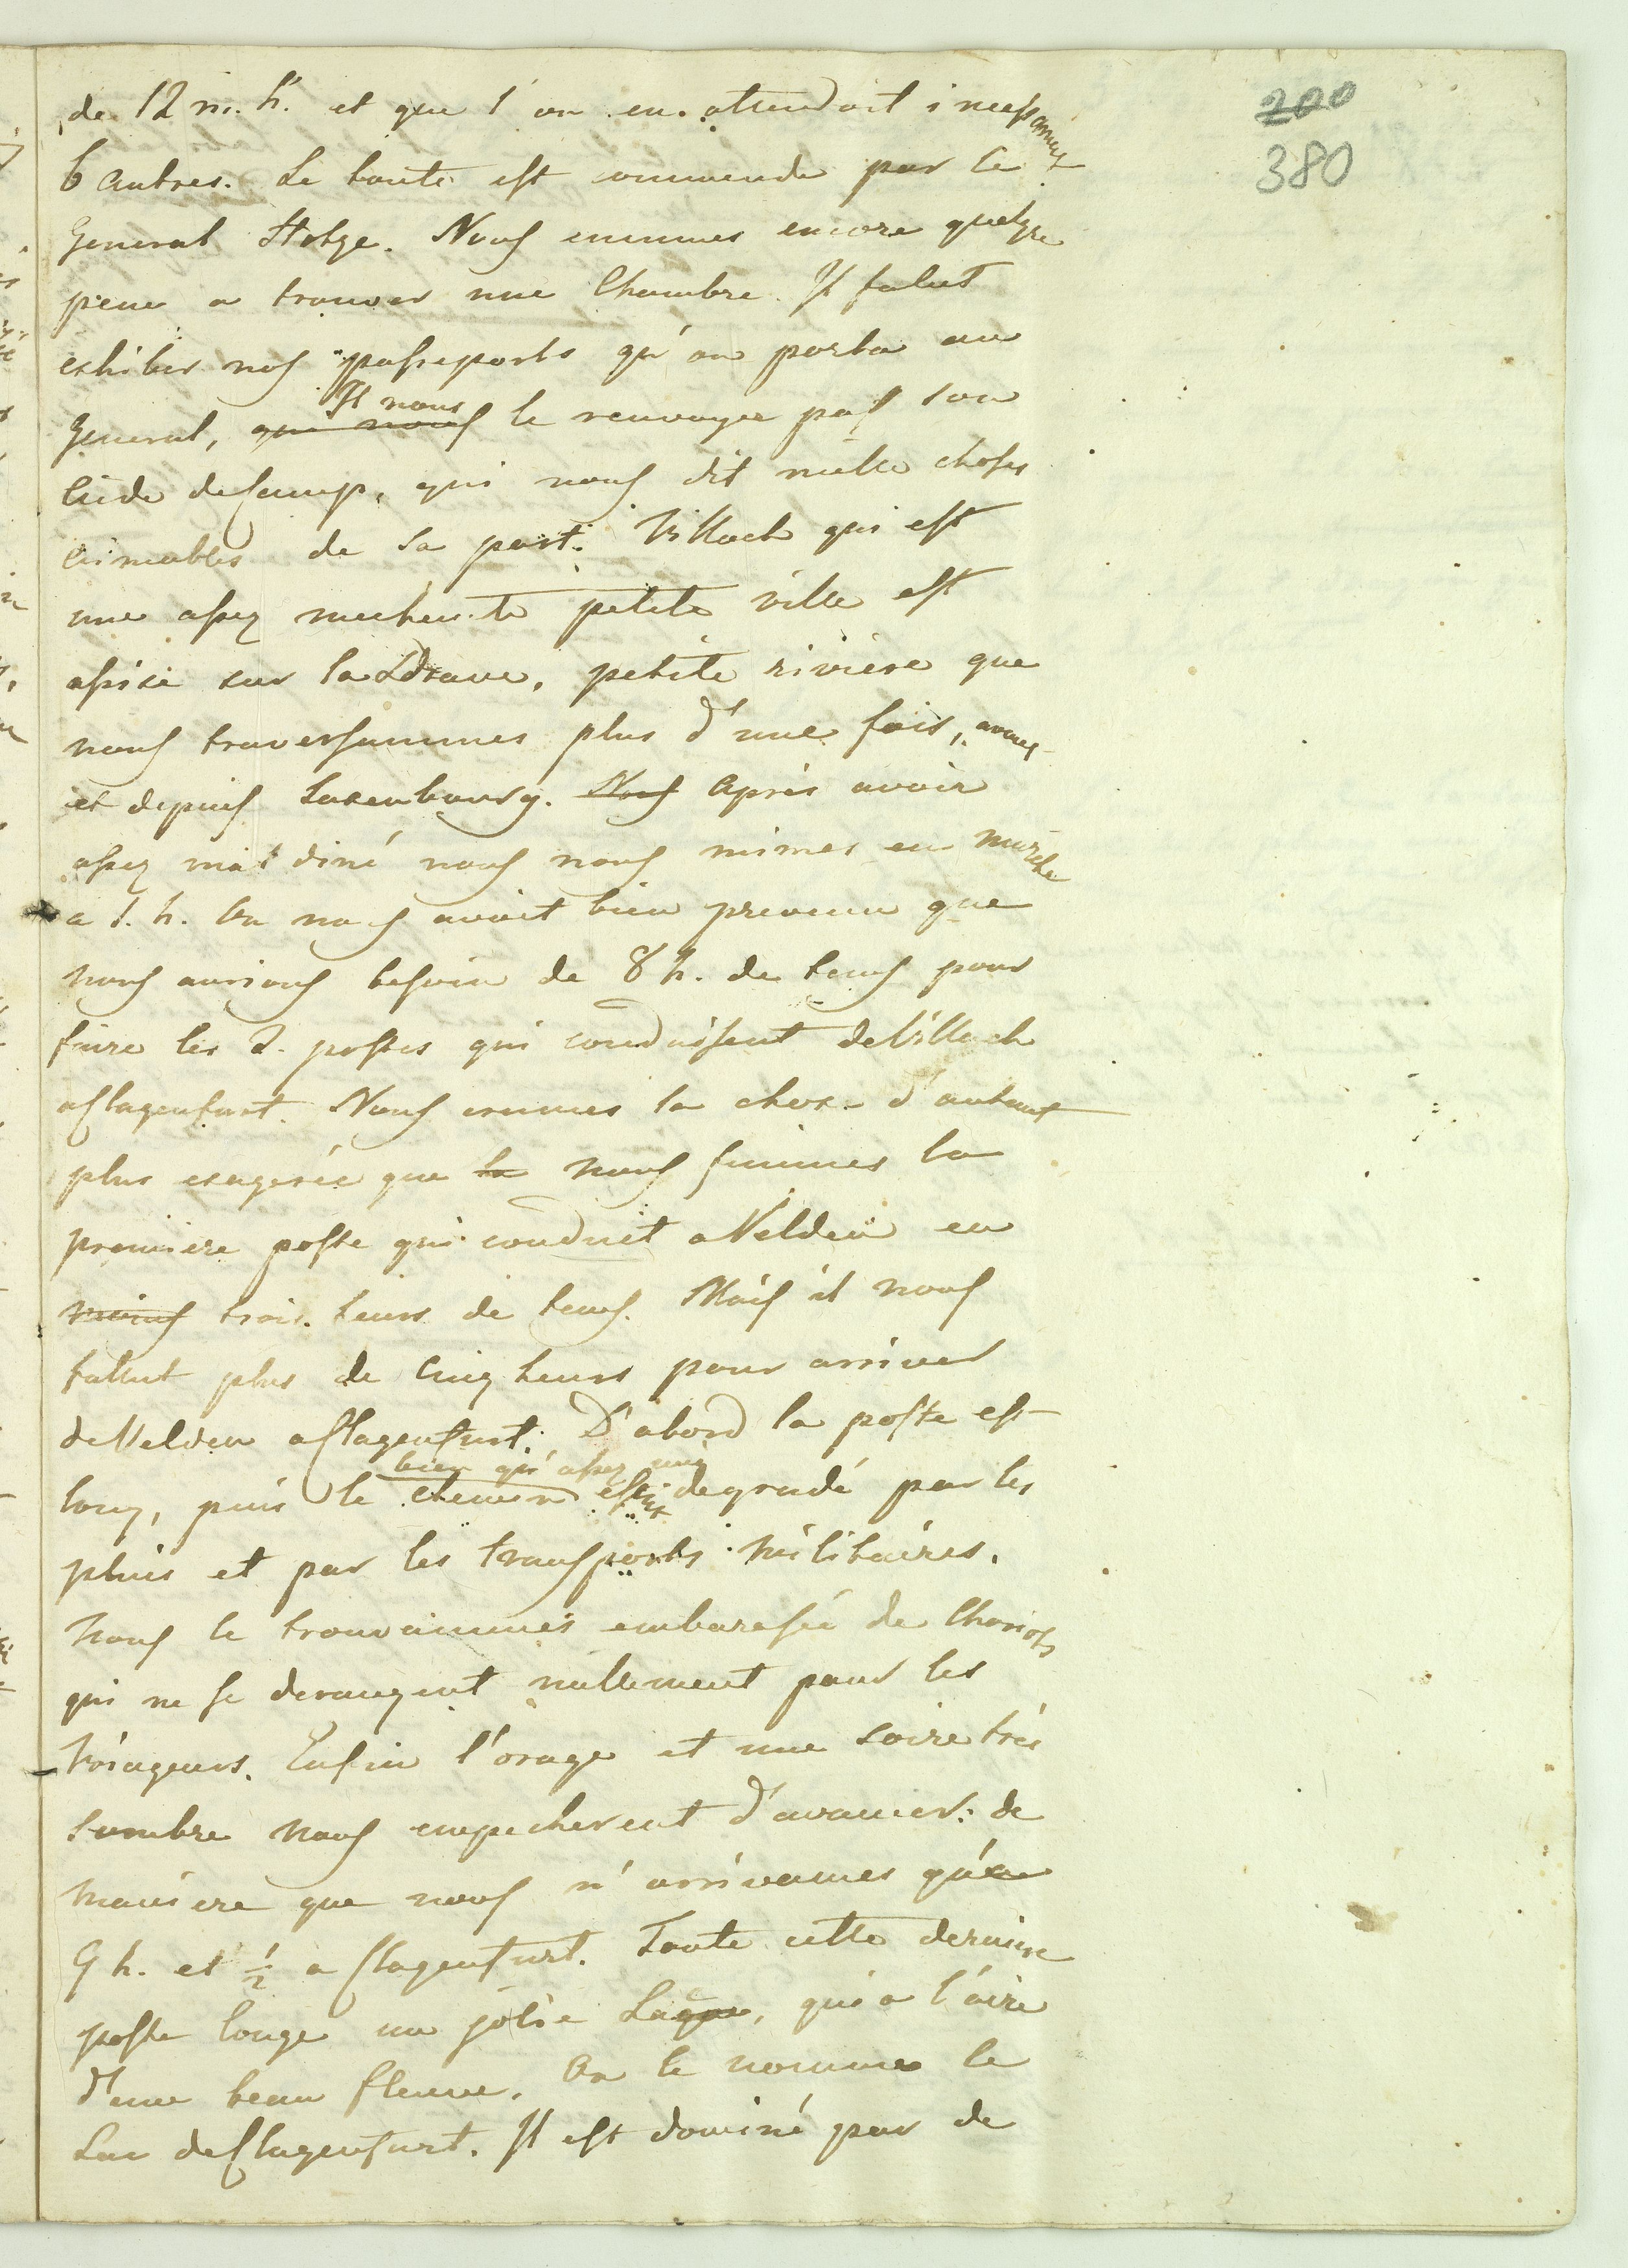 200
380
de 12 m. h. et que l'on en attendoit incessament
6 autres. Le toute est commende par le
General Hotze. Nous eumes encore quelque
peine a trouver une Chambre. Il falut
exhiber nos passeports qu'on porta au
Il nous
General, qui nous le renvoyer pas son
Aide de Camp, qui nous dit mille choses
aimables de sa part. Villach qui est
une assez mechente petite ville est
assise sur la Drave, petite riviere que
nous traversammes plus d'une fois, avant
et depuis Saxenbourg. Nous Après avoir
assez mal diné nous nous mimes en marche
a 1. h. On nous avoit bien prevenu que
nous aurions besoin de 8 h. de tems pour
faire les 2. postes qui conduisent de Villach
a Clagenfurt. Nous crumes la chose d'autant
plus exagerée que la nous fimmes la
premiere poste qui conduit a Velden en
moins trois heurs de tems. Mais il nous
fallut plus de Cinq heurs pour arriver
de Velden a Clagenfurt. D'abord la poste est
bien qu'assez uni
long, puis le chemin est degradé par les
pluis et par les transports militaires.
Nous le trouvammes embarassée de Chariots
qui ne se derangent nullement pour les
Voiageurs. Enfin l'orage et une soire très
sombre nous empecherent d'avancer: de
maniere que nous n'arrivames qu'a
9 h. et ½ a Clagenfurt. Toute cette derniere
poste longe un jolie Lac, qui a l'aire
d'une beau fleuve. On le nomme le
Lac de Clagenfurt. Il est dominé par de